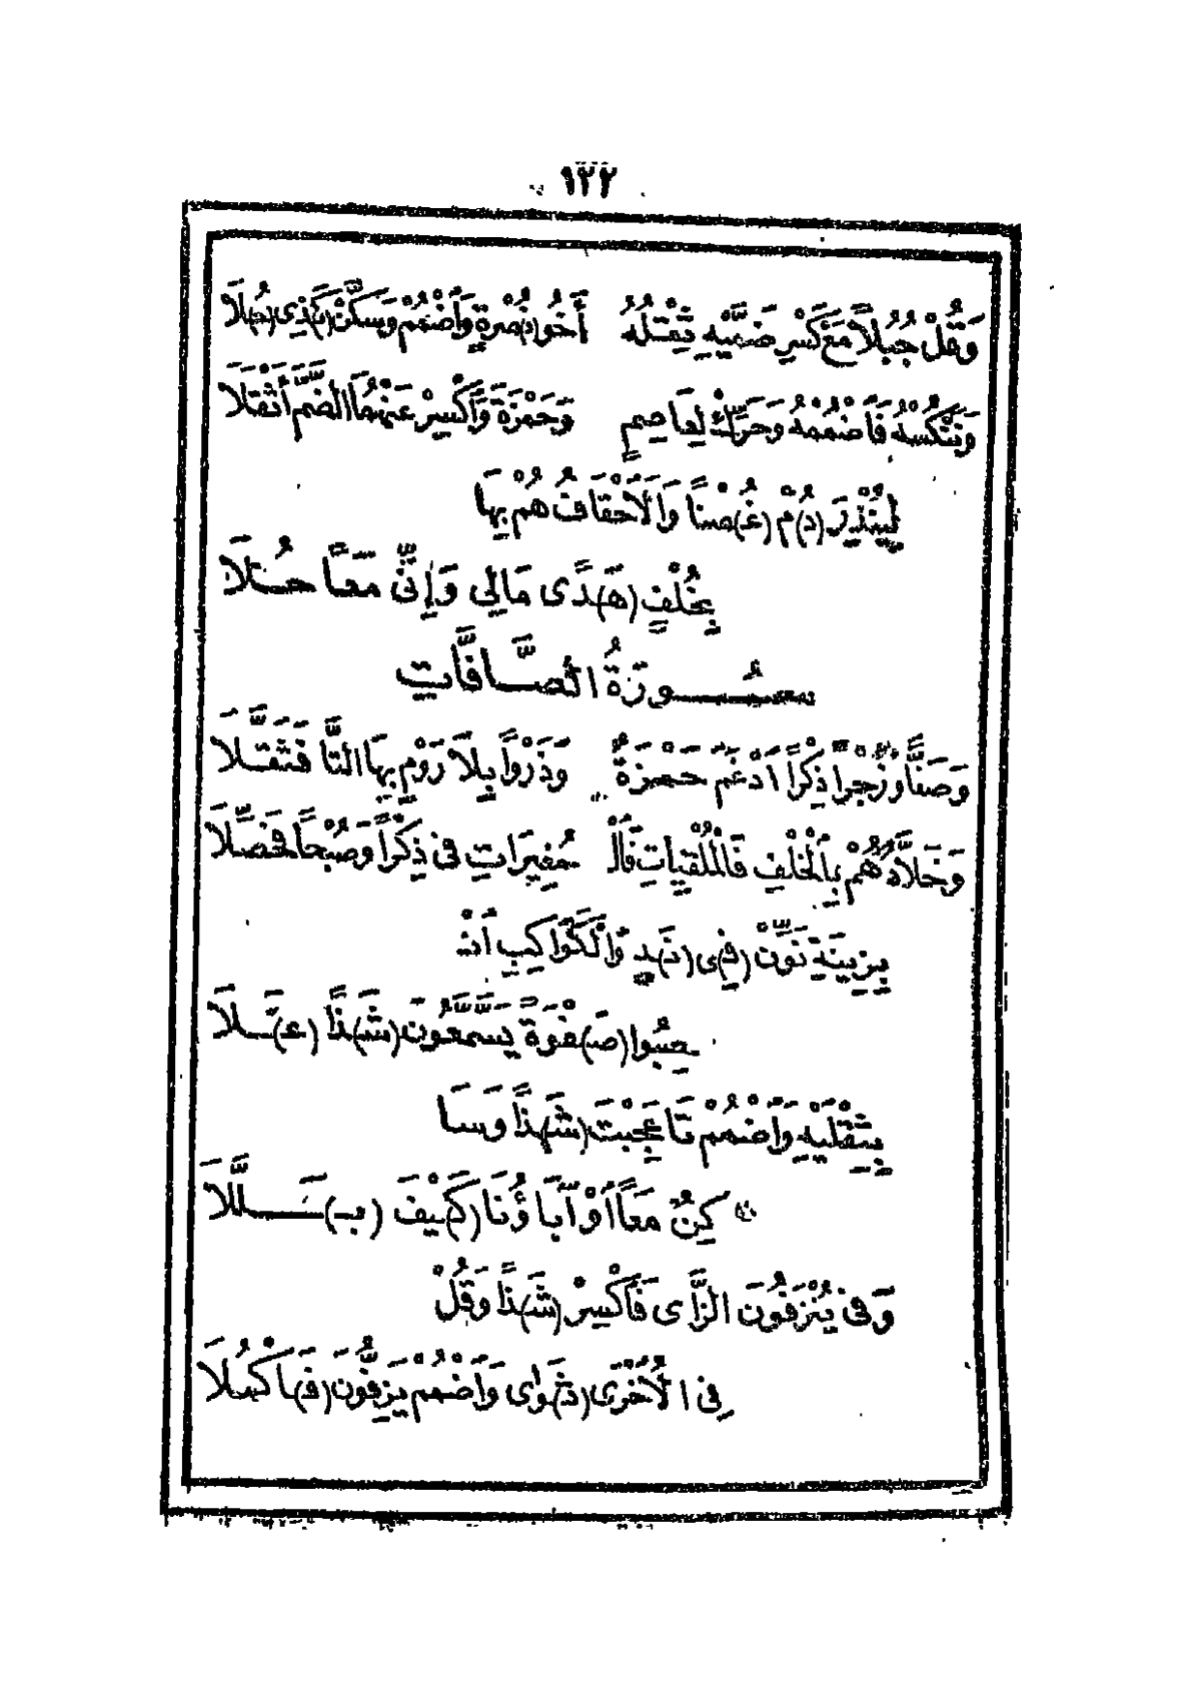 ١٢٢
وَقُلْ جُبُلاً مَعْ كَسْرِ ضَمَّيْهِ ثِقْلَهُ أَخُو (نُ)صْرَةٍ وَاضْمُمْ وَسَكِّنْ (كَ)ذِى (حُ)لَا
وَنَنْكُسْهُ فَاضْمُمْهُ وَحَرِّكْ لِعَاصِمٍ وَحَمْزَةَ وَاكْسِرْ عَنْهُمَا الضَّمَّ أَثْقَلَا
لِيُنْذِرَ (دُ)مْ (غُ)صْناً وَالَاحْقَافُ هُمْ بِهَا
بِخُلْفٍ (هَ)دَى مَالِى وَإِنِّى مَعاً حُلَا
سُورَةُ الصَّافَّاتِ
وَصَفًّا وَزَجْراً ذِكْراً ادْغَمَ حَمْزَةٌ وَذَرْواً بِلاَ رَوْمٍ بِهَا التَّا فَثَقَّلَا
وَخَلاَّدُهُمْ بِالْخُلْفِ فَالْمُلْقِيَاتِ فَالْـ ـمُغِيرَاتِ فى ذِكْراً وَصُبْحاً فَحَصِّلَا
بِزِينَةِ نَوِّنْ (فِ)ى (نَ)دٍ وَالْكَوَاكِبِ انْـ
ـصِبُوا (صَ)فْوَةً يَسَّمَّعُونَ (شَ)ذاً (عَ)لَا
بِثِقْلَيْهِ وَاضْمُمْ تَا عَجِبْتَ (شَ)ذاً وَسَا
كِنٌ مَعاً اَوْ آبَاؤُنَا (كَ)يْفَ (بَ)لَّلَا
وَفى يُنْزَفُونَ الزَّاىَ فَاكْسِرْ (شَ)ذاً وَقُلْ
فِى الُاخْرَى (ثَ)وَى وَاضْمُمْ يَزِفُّونَ (فَ)اكْمُلَا